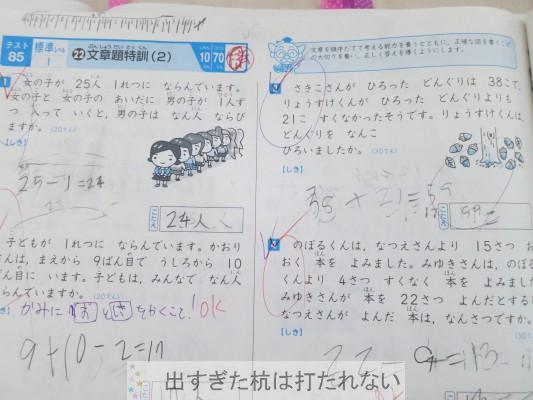 テスト 85
標準レベル 1
ぶんしょうだいとっくん
22 文章題特訓(2)
じかん 10
70
1 女の子が 25人 1れつに ならんでいます。
女の子と 女の子の あいだに 男の子が 1人ず
つ 入って いくと、男の子は なん人 ならび
ますか。(20てん)
【しき】
25-1=24
こたえ 24人
子どもが 1れつに ならんでいます。かおり
んは、まえから 9ばん目で うしろから 10
ん目に います。子どもは、みんなで なん人
らんでいますか。(20てん)
かみに
をかくこと!OK
9+10-2=17
こたえ
文章を順序だてて考える能力を養うとともに、正確な図を書くこ
の大切さを養い、正しく答えを導くようにします。
さきこさんが ひろった どんぐりは 38こで、
りょうすけくんが ひろった どんぐりよりも
21こ すくなかったそうです。りょうすけくんは、
どんぐりを なんこ
ひろいましたか。(30てん)
【しき】
+21=59
こたえ
のぼるくんは、なつえさんより 15さつ お
おく 本を よみました。みゆきさんは、のぼる
くんより 4さつ すくなく 本を よみました
みゆきさんが 本を 22さつ よんだとする
なつえさんが よんだ 本は、なんさつですか。
【しき】
出すぎた杭は打たれない